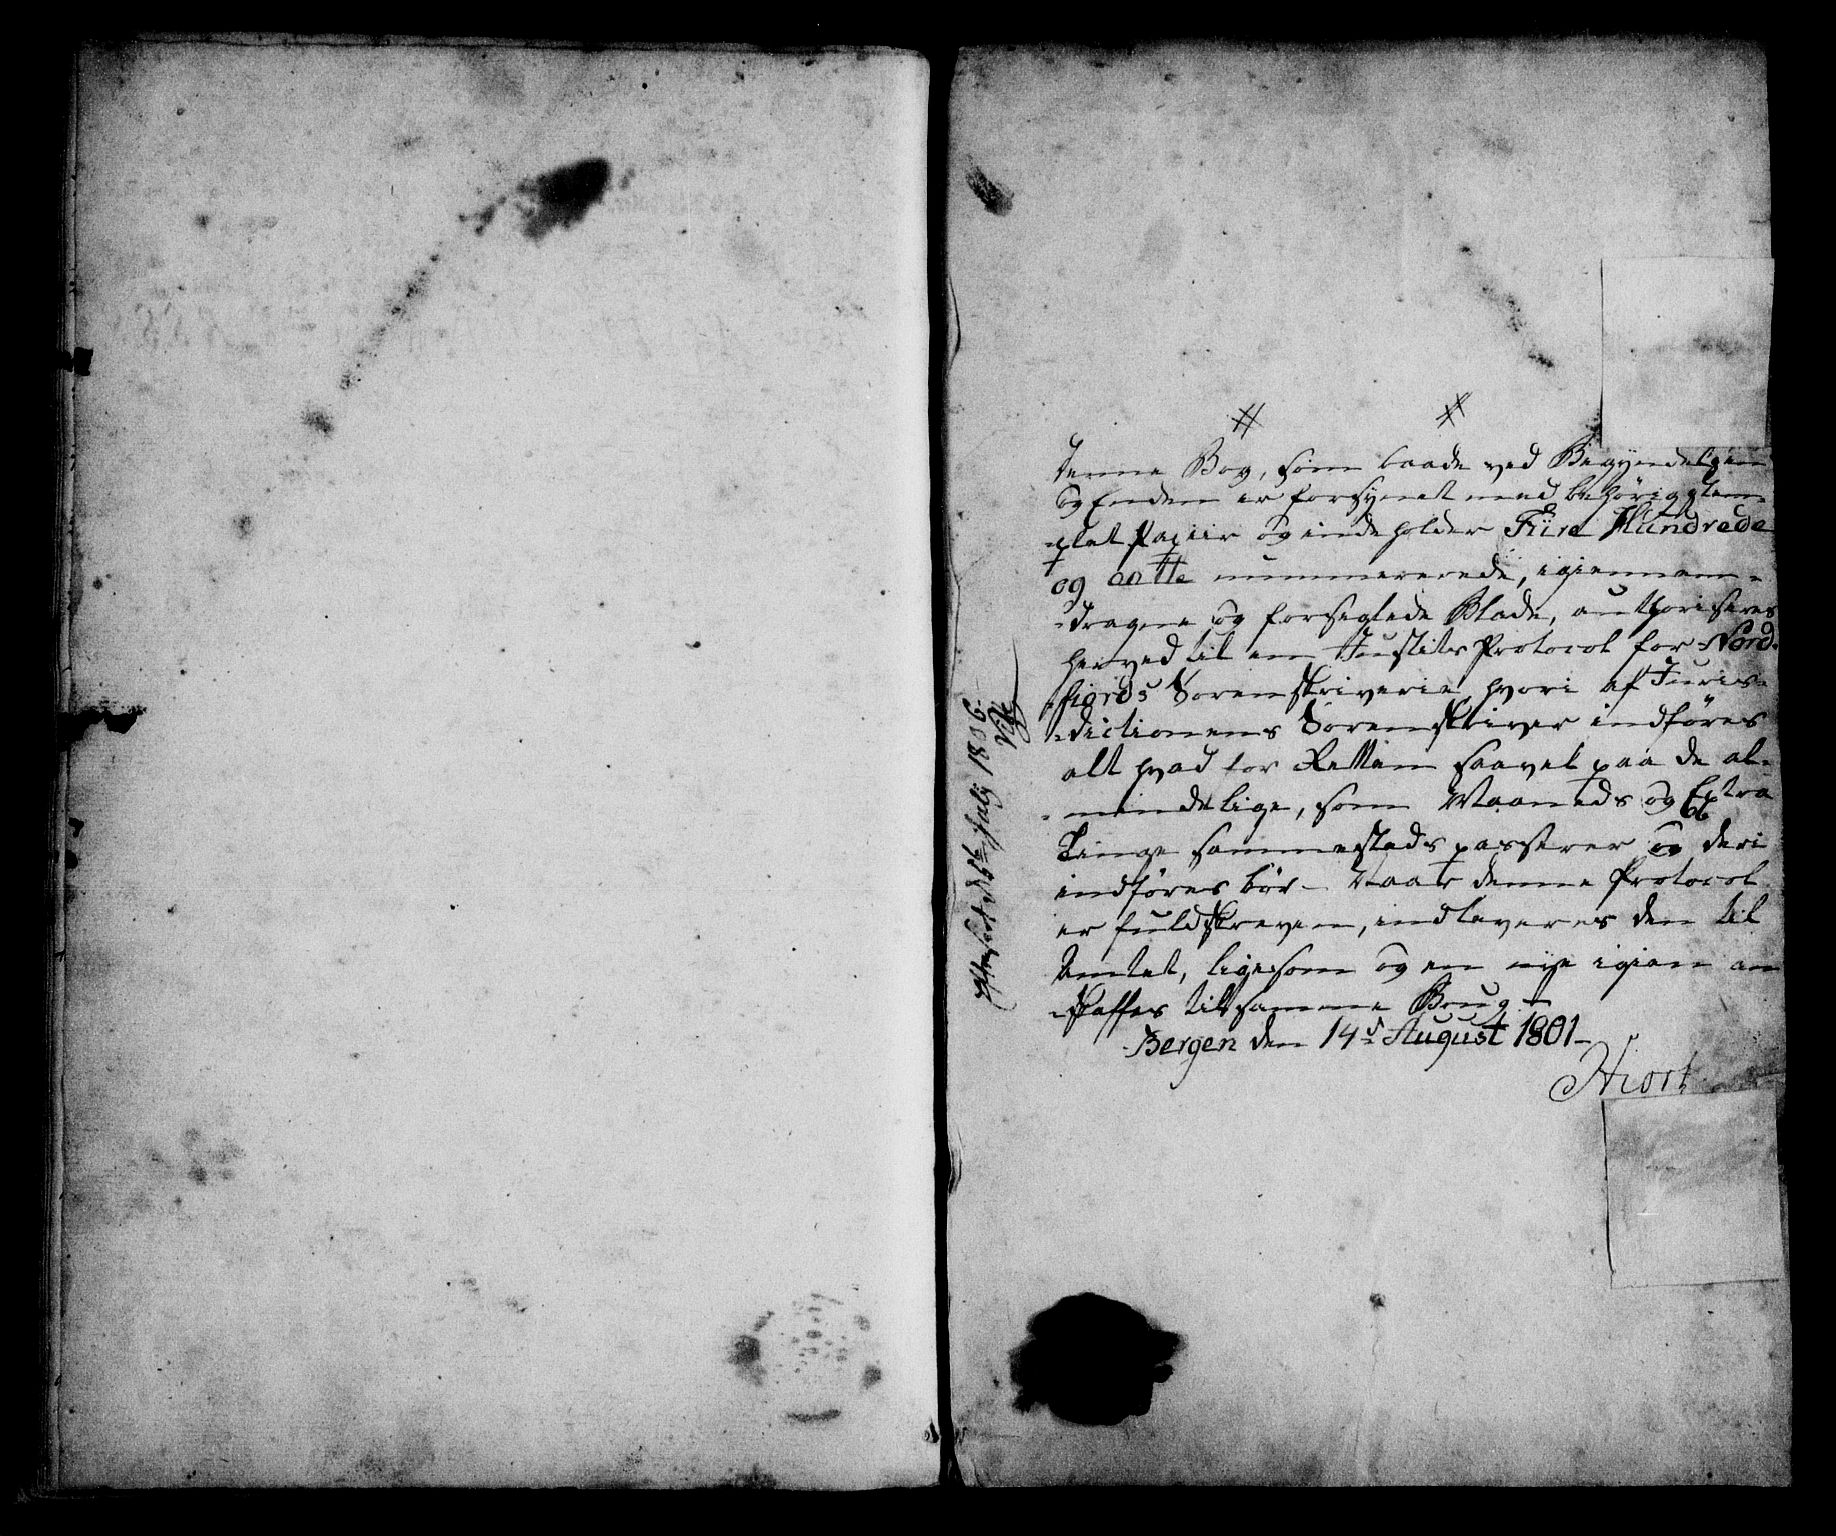 Denne Bog, som baade ved Begyndelsen
og Enden er forsynet med behörig stem-
-plet Papiir og indeholder Fiire Hundrede
og otte nummererede, igiennem-
-dragne og forseglede Blade, authoriseres
herved til en Justits Protocol for Nord-
-fiords Sorenskriverie, hvori af Juris-
-dictionens Sorenskriver indföres
alt hvad for Retten saavel paa de al-
-mindelige, som Maaneds og Extra
Tinge sammesteds passerer og deri
indföres bör - Naar denne Protocol
er fuldskreven, indleveres den til
Amtet, ligesom og en nye igien an-
-skaffes til samme Brug -
Bergen den 14de August 1801 -
Hiort
d 5te Julij 1806.